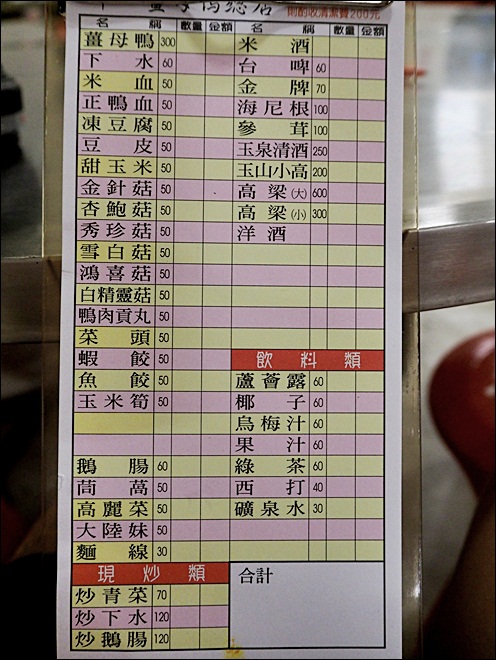 總店
酌收清潔費200元
名稱 數量 金額
薑母鴨 300
下水 60
米血 50
正鴨血 50
凍豆腐 50
豆皮 50
甜玉米 50
金針菇 50
杏鮑菇 50
秀珍菇 50
雪白菇 50
鴻喜菇 50
白精靈菇 50
鴨肉貢丸 50
菜頭 50
蝦餃 50
魚餃 50
玉米筍 50
鵝腸 60
茼萵 50
高麗菜 50
大陸妹 50
麵線 30
現炒類
炒青菜 70
炒下水 120
炒鵝腸 120
名稱 數量 金額
米酒
台啤 60
金牌 70
海尼根 100
參茸 100
玉泉清酒 250
玉山小高 200
高梁(大) 600
高梁(小) 300
洋酒
飲料類
蘆薈露 60
椰子 60
烏梅汁 60
果汁 60
綠茶 60
西打 40
礦泉水 30
合計